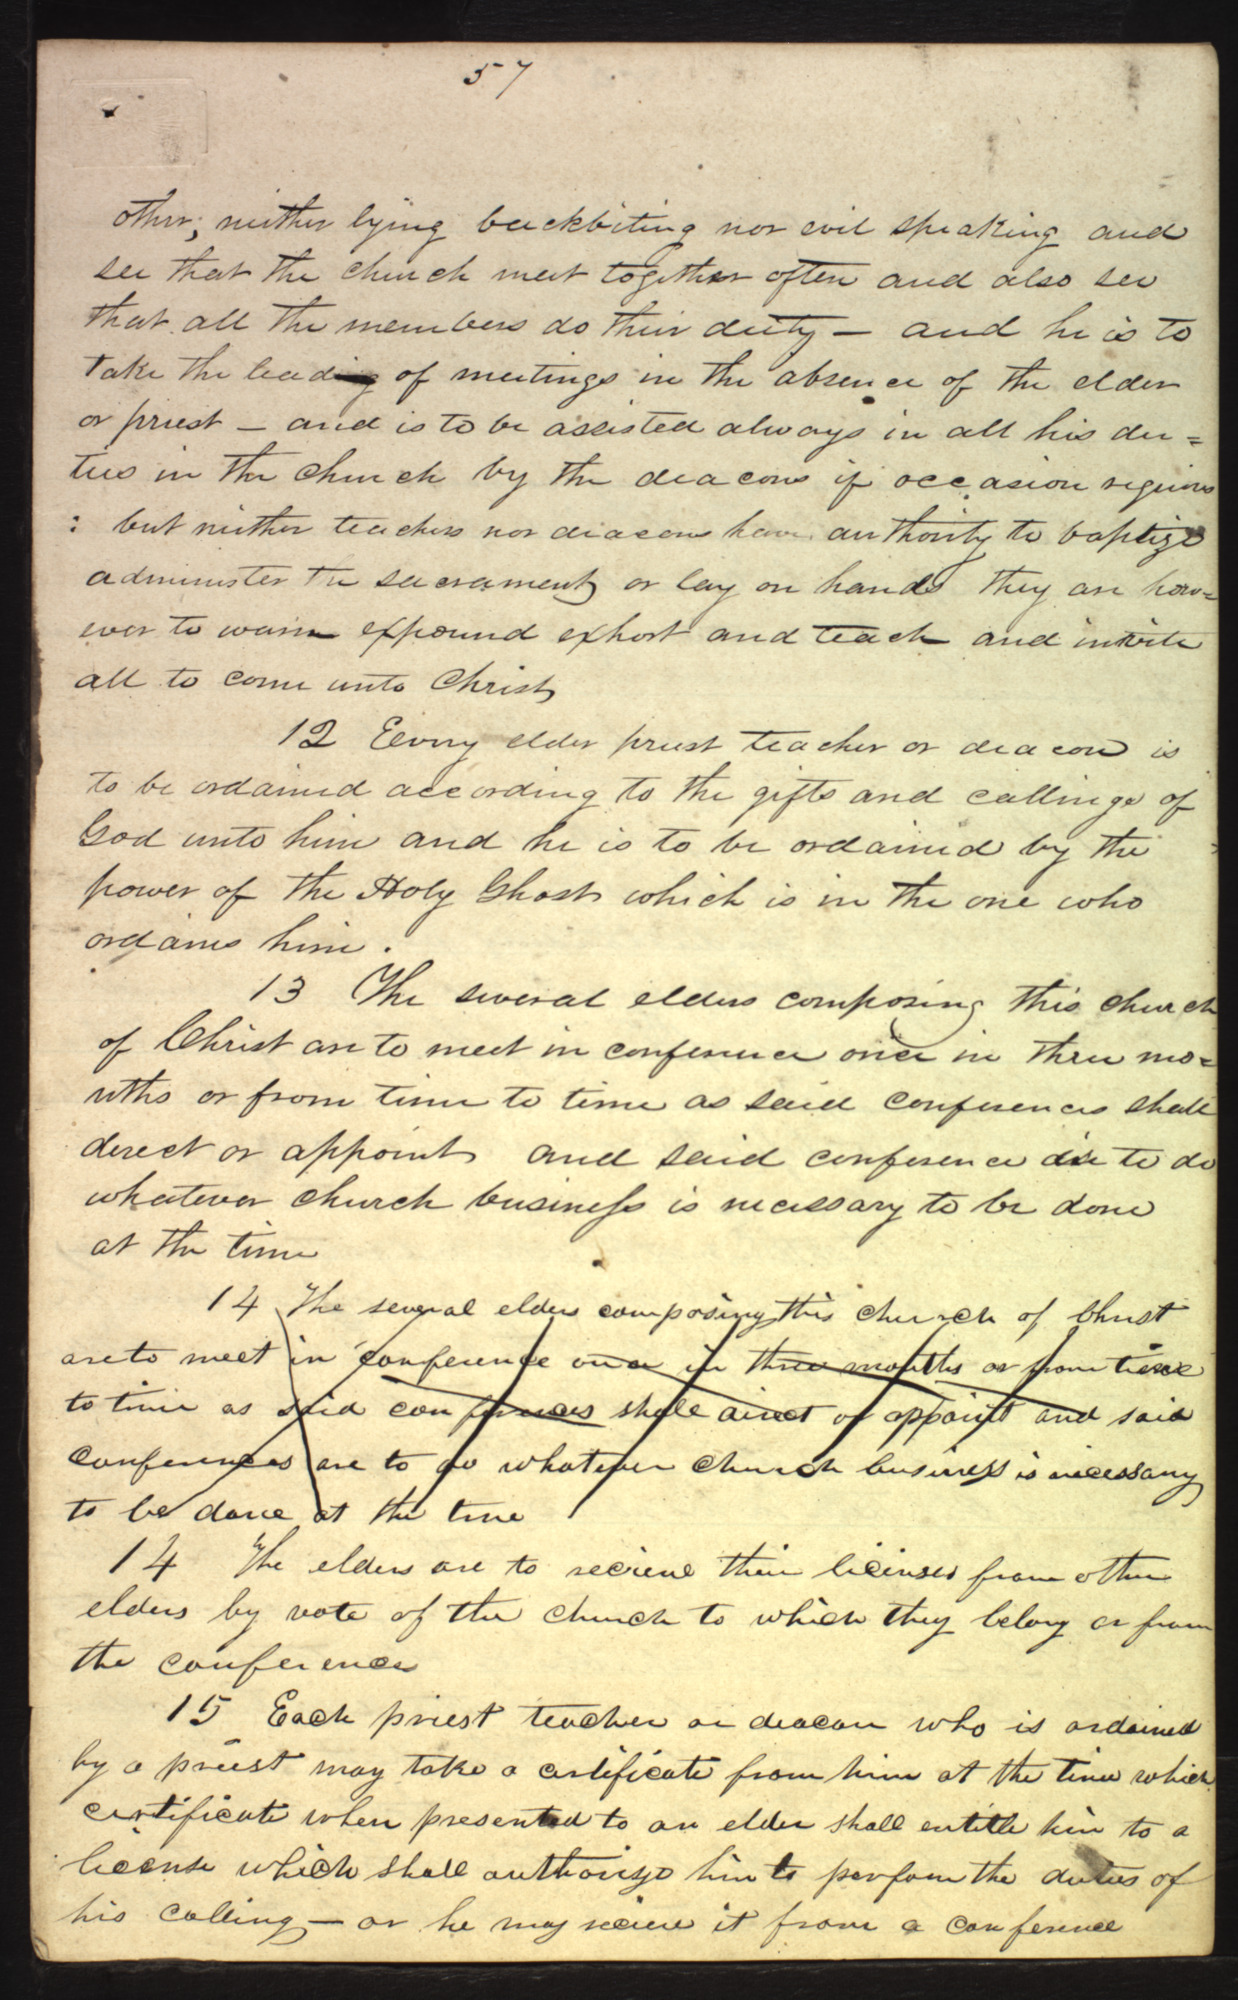 57
other; neither lying backbiting nor evil speaking and
see that the church meet together often and also see
that all the members do their duty — and he is to
take the leading of meetings in the absence of the elder
or priest — and is to be assisted always in all his du=
ties in the church by the deacons if occasion requires
: but neither teachers nor deacons have authority to baptize
administer the sacrament or lay on hands they are how=
ever to warn expound exhort and teach and invite
all to come unto Christ
12 Every elder priest teacher or deacon is
to be ordained according to the gifts and callings of
God unto him and he is to be ordained by the
power of the Holy Ghost which is in the one who
ordains him.
13 The several elders composing this church
of Christ are to meet in conference once in three mo=
nths or from time to time as said conferences shall
direct or appoint and said conference are to do
whatever church business is necessary to be done
at the time
14 The several elders composing this church of Christ
are to meet in conference once in three months or from time
to time as said conferences shall direct or appoint and said
conferences are to do whatever church business is necessary
to be done at the time
14 The elders are to recieve their licenses from other
elders by vote of the church to which they belong or from
the conferences
15 Each priest teacher or deacon who is ordained
by a priest may take a certificate from him at the time which
certificate when presented to an elder shall entitle him to a
license which shall authorize him to perform the duties of
his calling — or he may recieve it from a conference